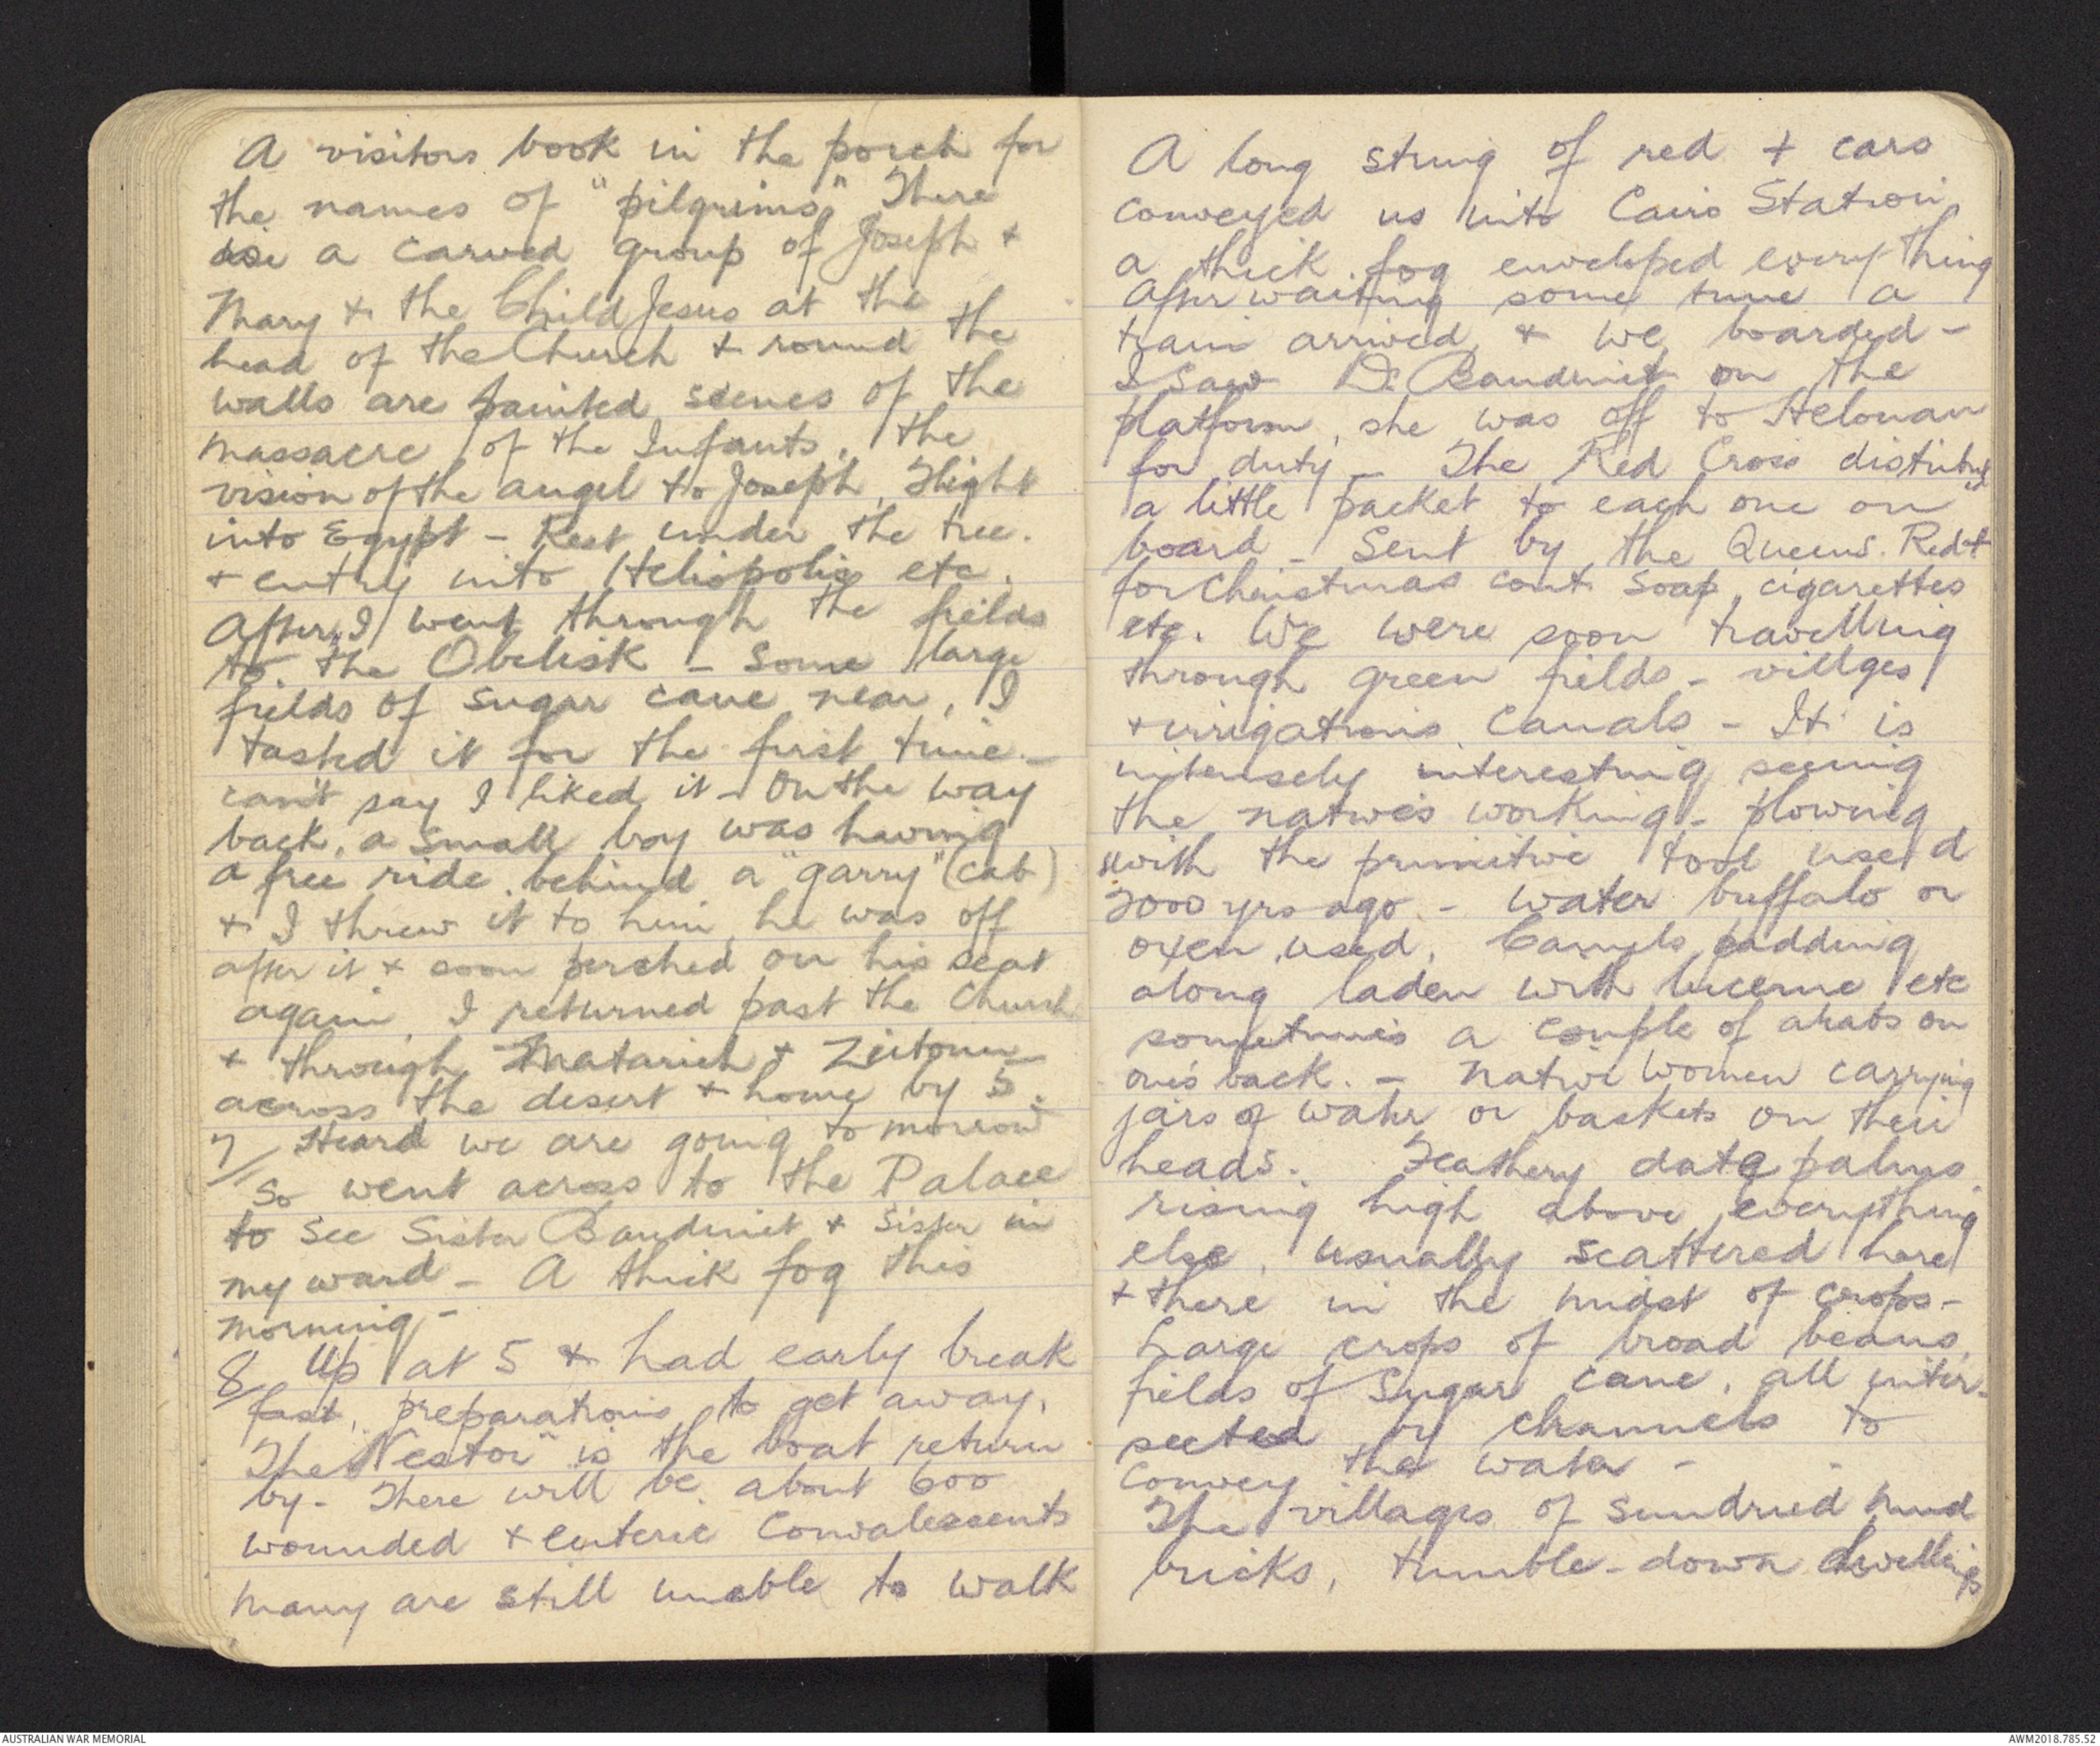 A visitors book in the porch for
the names of "pilgrims." There
a carved group of Joseph +
Mary + the Child Jesus at the
head of the Church + round the
walls are painted scenes of the
massacre of the Infants, the
vision of the angel to Joseph, Flight
into Egypt - Rest under the tree.
+ entry into Heliopolis etc.
After I went through the fields
to "the Obelisk - some large
fields of sugar cane near, I
tasted it for the first time -
can't say I liked it - On the way
back, a small boy was having
a free ride behind a "garry" (cab)
+ I threw it to him, he was off
after it + soon perched on his seat
again. I returned past the Church
+ through Matarieh + Zeitoun
across the desert + home by 5.
7/ Heard we are going to morrow
so went across to the Palace
to see Sister Baudinet + Sister in
my ward - A thick fog this
morning -
8/ Up at 5 + had early break
fast, preparations to get away.
The "Nestor" is the boat return
by - There will be about 600
wounded + enteric convalescents
many are still unable to walk
A long string of red + cars
conveyed us into Cairo Station,
a thick fog enveloped everything
After waiting some time a
train arrived + we boarded -
I saw Dr Baudinet on the
platform, she was off to Helouan
for duty - The Red Cross distribut
a little packet to each one on
board - Sent by the Queens. Red +
for Christmas cont. soap, cigarettes
etc. We were soon travelling
through green fields - villges
+ irrigations canals - It is
intensely interesting seeing
the natives working - plowing
with the primitive tool used
2000 yrs ago - water buffalo or
oxen used. Camels padding
along laden with lucerne etc
sometimes a couple of arabs on
one's back. - Native women carrying
jars of water or baskets on their
heads. Feathery date palms
rising high above everything
else, usually scattered here
+ there in the midst of crops -
Large crops of broad beans,
fields of Sugar cane, all inter-
sected by channels to
convey the water -
The villages of sundried mud
bricks, tumble-down dwellings
AUSTRALIAN WAR MEMORIAL
AWM2018.785.52